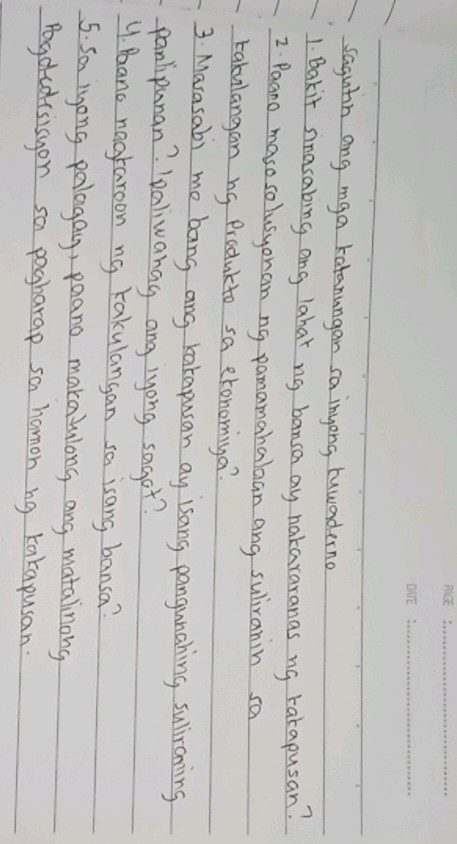 PAGE :
DATE :
Sagutin ang mga katanungan sa inyong kuwaderno
1. Bakit sinasabing ang lahat ng bansa ay nakararanas ng kakapusan?
2. Paano masosolusyonan ng pamamahalaan ang suliranin sa
kakulangan ng Produkto sa ekonomiya?
3. Masasabi mo bang ang kakapusan ay isang pangunahing suliraning
panlipunan? Ipaliwanag ang iyong sagot?
4. Paano nagkaroon ng kakulangan sa isang bansa?
5. Sa iyong palagay, paano makatulong ang matalinong
Pagdedisisyon sa pagharap sa hamon ng kakapusan.